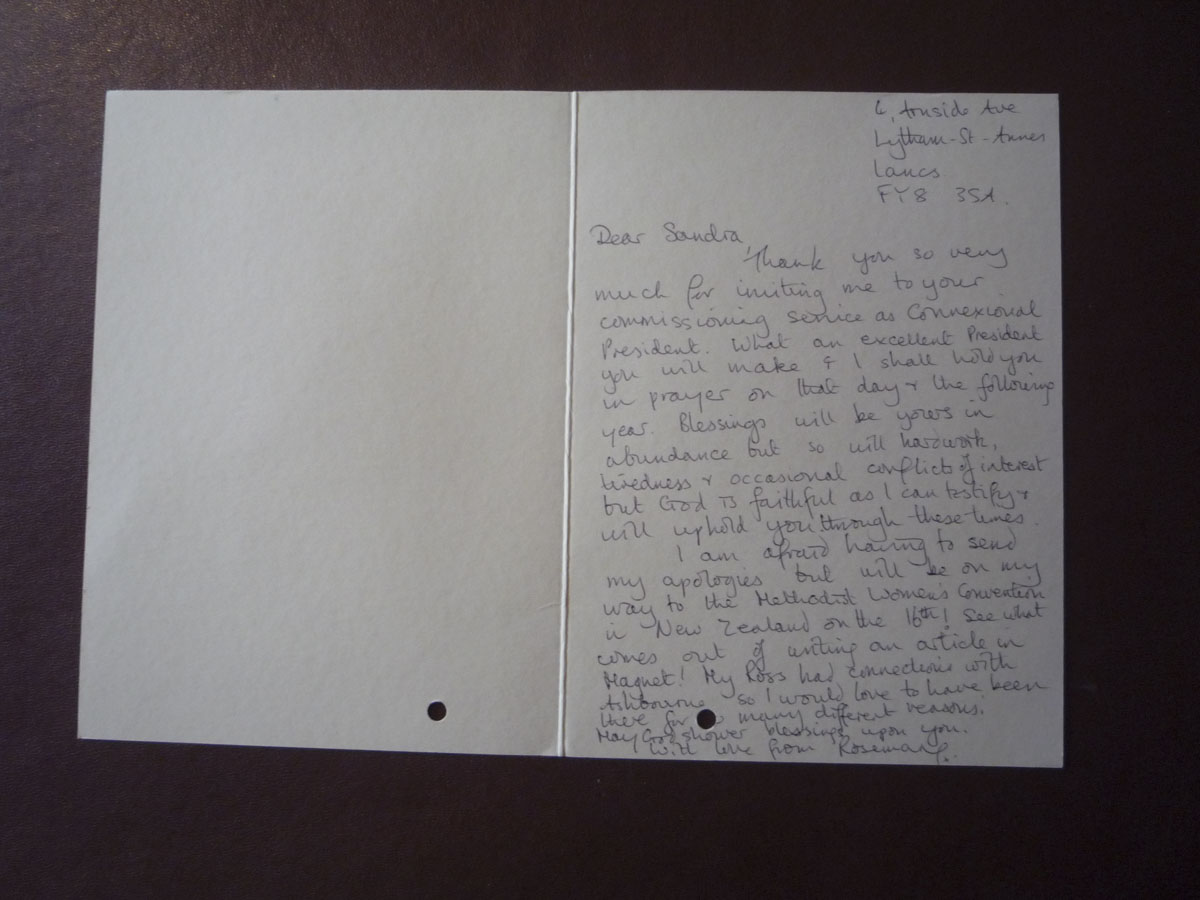 6, Arnside Ave
Lytham-St-Annes
Lancs.
FY8 3SA.
Dear Sandra,
Thank you so very
much for inviting me to your
commissioning service as Connexional
President. What an excellent President
you will make & I shall hold you
in prayer on that day & the following
year. Blessings will be yours in
abundance but so will hardwork,
tiredness & occasional conflicts of interest
but God is faithful as I can testify &
will uphold you through these times.
I am afraid having to send
my apologies but will be on my
way to the Methodist Women's Convention
in New Zealand on the 16th! See what
comes out of writing an article in
Magnet! My Ross had connections with
Ashbourne so I would love to have been
there for many different reasons.
May God shower blessings upon you.
With love from Rosemary.